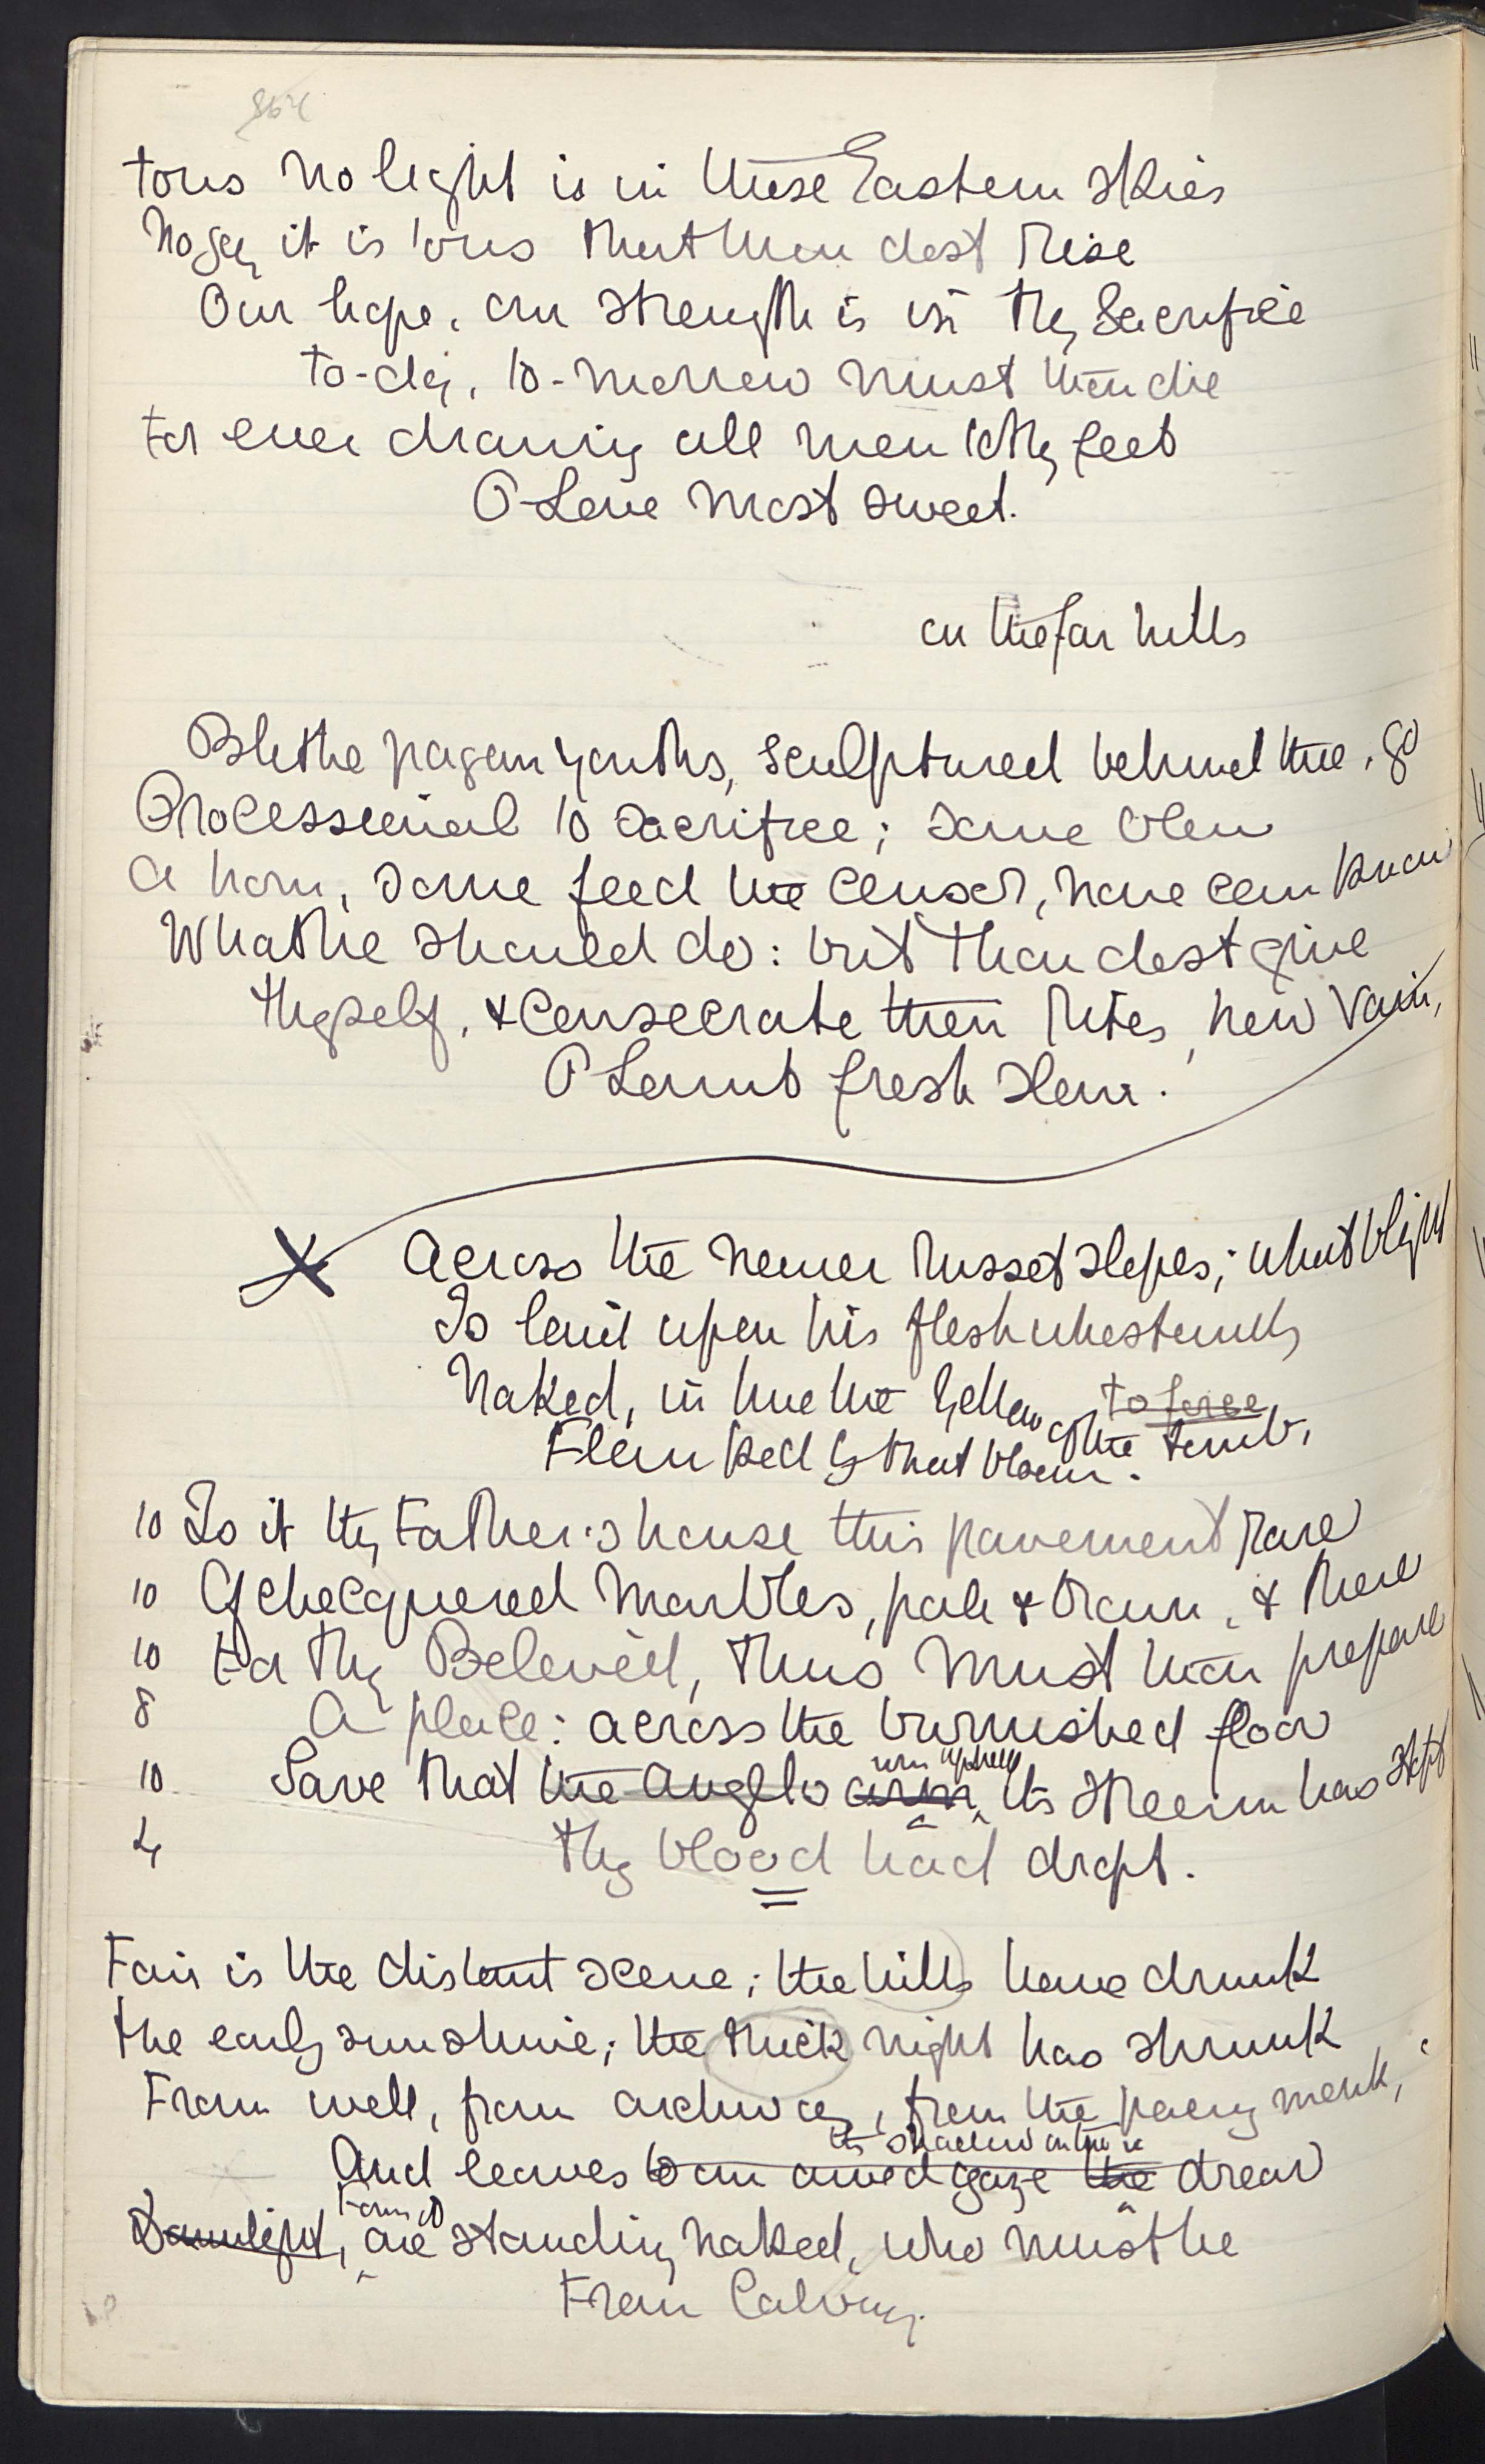 For us no light is in these Eastern skies
Nay, it is for us that thou dost rise
Our hope, our strength is in thy Sacrifice
To-day, to-morrow must thou die
For ever drawing all men to thy feet
O Love most sweet.
on the far hills
Blithe pagan youths, sculptured behind thee, go
Processional to sacrifice; some blow
A horn, some feed the censer, none can know
What he should do: but thou dost give
Thyself, & consecrate their rites, now vain,
O Lamb fresh slain.
X Across the nearer russet slopes; what blight
Is laid upon his flesh who stands
Naked, in hue the yellow of the tomb,
to force
Flanked by that bloom.
10 Is it thy Father's house this pavement rare
10 Of checquered marbles, pale & brown, & there
10 For thy Belovèd, thus must thou prepare
8 A place: across the burnished floor
10 Save that the Angel's urn upheld arm, its stream has stopt
4 Thy blood had dropt.
Fair is the distant scene; the hills have drunk
The early sunshine; the thick night has shrunk
From well, from archway, from the paény monk,
its shadow on the
And leaves to our awed gaze the drear
Form of
Dawnlight, one standing naked, who must be
From Calvary.